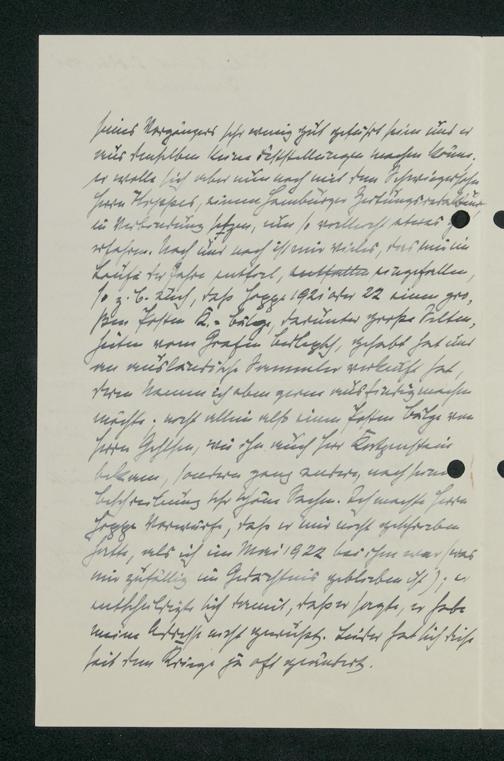 seines Vorgängers sehr wenig gut geführt seien und er
aus denselben keine Feststellungen machen könne.
er wolle sich aber nun noch mit dem Schwiegersohn
Herrn Hoppes, einem Hamburger Zeitungsredakteur
in Verbindung setzen, um so vielleicht etwas zu
erfahren. Nach und nach ist mir vieles, das mir im
Laufe der Jahre entfiel, eingefallen,
so z. B. auch, daß Hoppe 1921 oder 22 einen gro-
ßen Posten R.-Bälge, darunter große Selten-
heiten vom Grafen Berlepsch, gehabt hat und
an ausländische Sammler verkauft hat,
deren Namen ich eben gerne ausfindig machen
möchte; nicht allein also einen Posten Bälge von
Herrn Gehlsen, wie ihn auch Herr
bekam, sondern ganz andere, nach seiner
Beschreibung sehr schöne Sachen. Ich machte Herrn
Hoppe Vorwürfe, daß er mir nicht geschrieben
hatte, als ich im Mai 1922 bei ihm war (was
mir zufällig im Gedächtnis geblieben ist); er
entschuldigte sich damit, daß er sagte, er habe
meine Adresse nicht gewußt. Leider hat sich diese
seit dem Kriege zu oft geändert.